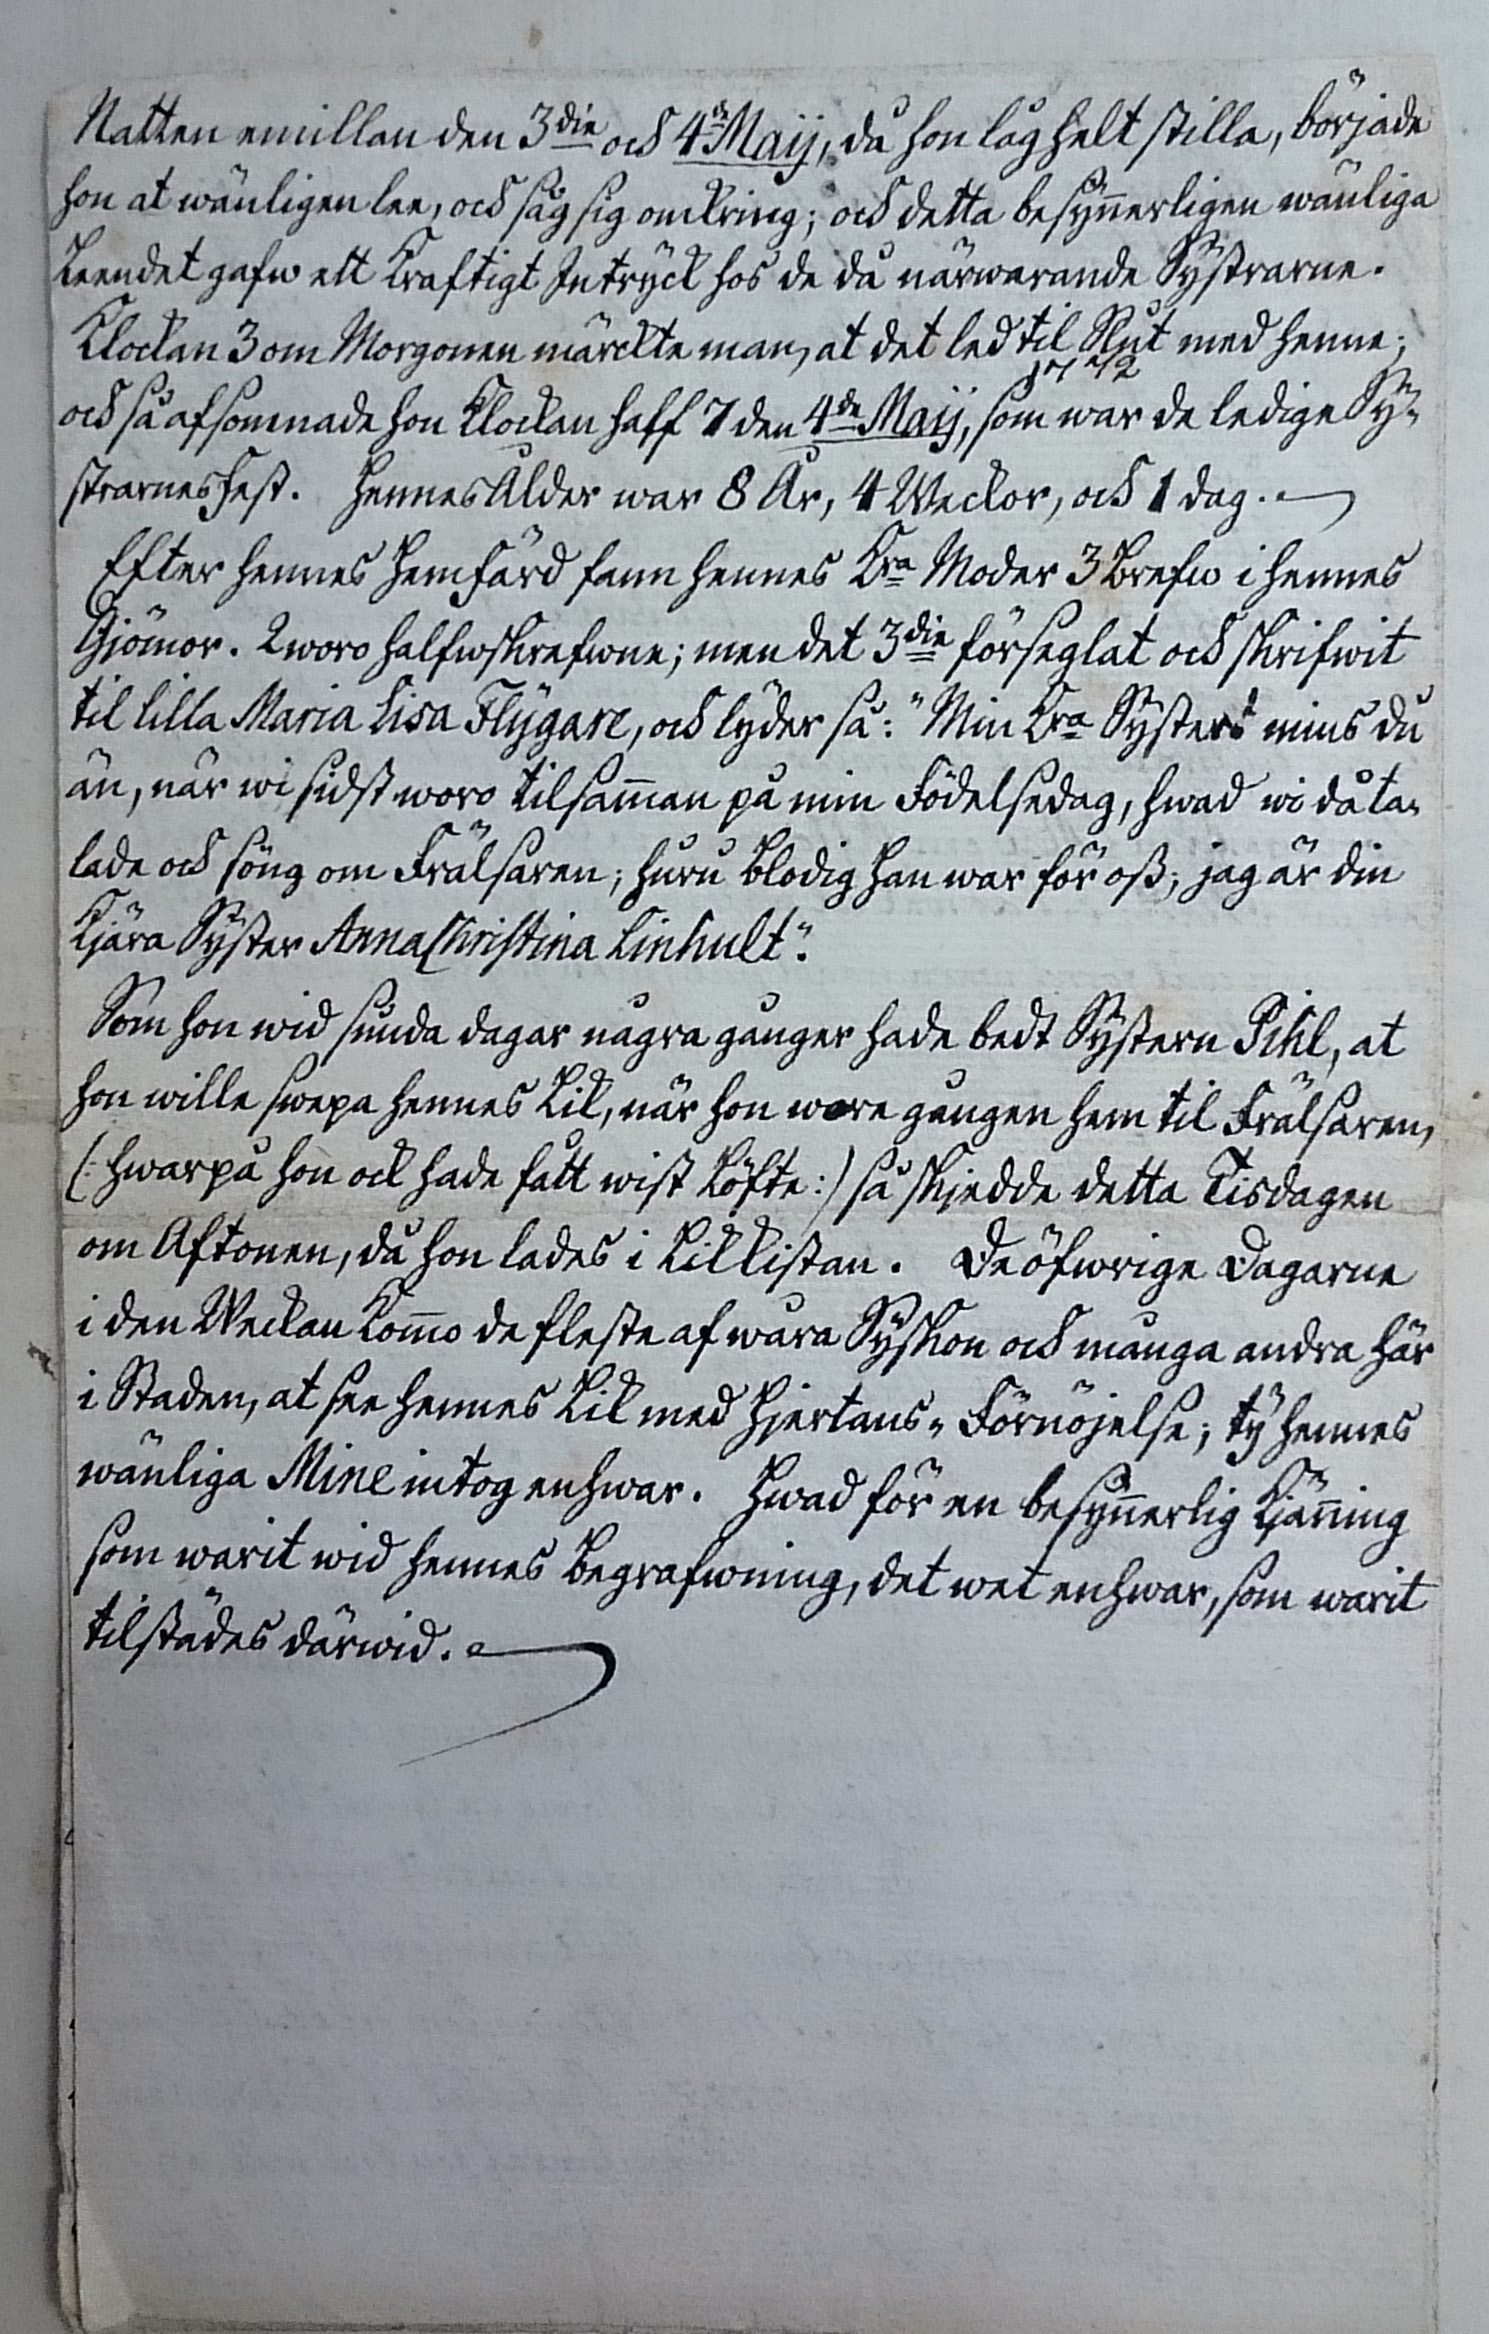 Natten emillan den 3die och 4de Maij, då hon låg helt stilla, började
hon at wänligen lee, och såg sig omkring; och detta besyn̄erligen wänliga
Leendet gafw ett Kraftigt Intryck hos de då närwarande Systrarne.
Klockan 3 om Morgonen märckte man, at det led til Slut med henne;
1772
och så afsomnade hon Klockan half 7 den 4de Maij, som war de ledige Sy-
strarnes Fest. Hennes Ålder war 8 År, 4 Weckor, och 1 dag.
Efter hennes Hemfärd fann hennes Kra Moder 3 Brefw i hennes
Gjömor. 2 woro halfwskrefwne; men det 3die förseglat och skrifwit
til lilla Maria Lisa Flygare, och lyder så: "Min Kra Syster! mins du
än, när wi sidst woro tilsam̄an på min Födelsedag, hwad wi då ta-
lade och söng om Frälsaren; huru blodig Han war för oß; jag är din
Kjära Syster Anna Christina Linhult".
Som hon wid sunda dagar några gånger hade bedt Systern Pihl, at
hon wille swepa hennes Lik, när hon wore gången hem til Frälsaren,
(: hwarpå hon ock hade fått wist Löfte :) så skjedde detta Tisdagen
om Aftonen, då hon lades i Likkistan. De öfwrige Dagarne
i den Weckan kom̄o de fleste af wåra Syskon och många andra här
i Staden, at see hennes Lik med Hjertans-Förnöjelse; ty hennes
wänliga Mine intog enhwar. Hwad för en besyn̄erlig Kjän̄ing
som warit wid hennes Begrafwning, det wet enhwar, som warit
tilstädes därwid.